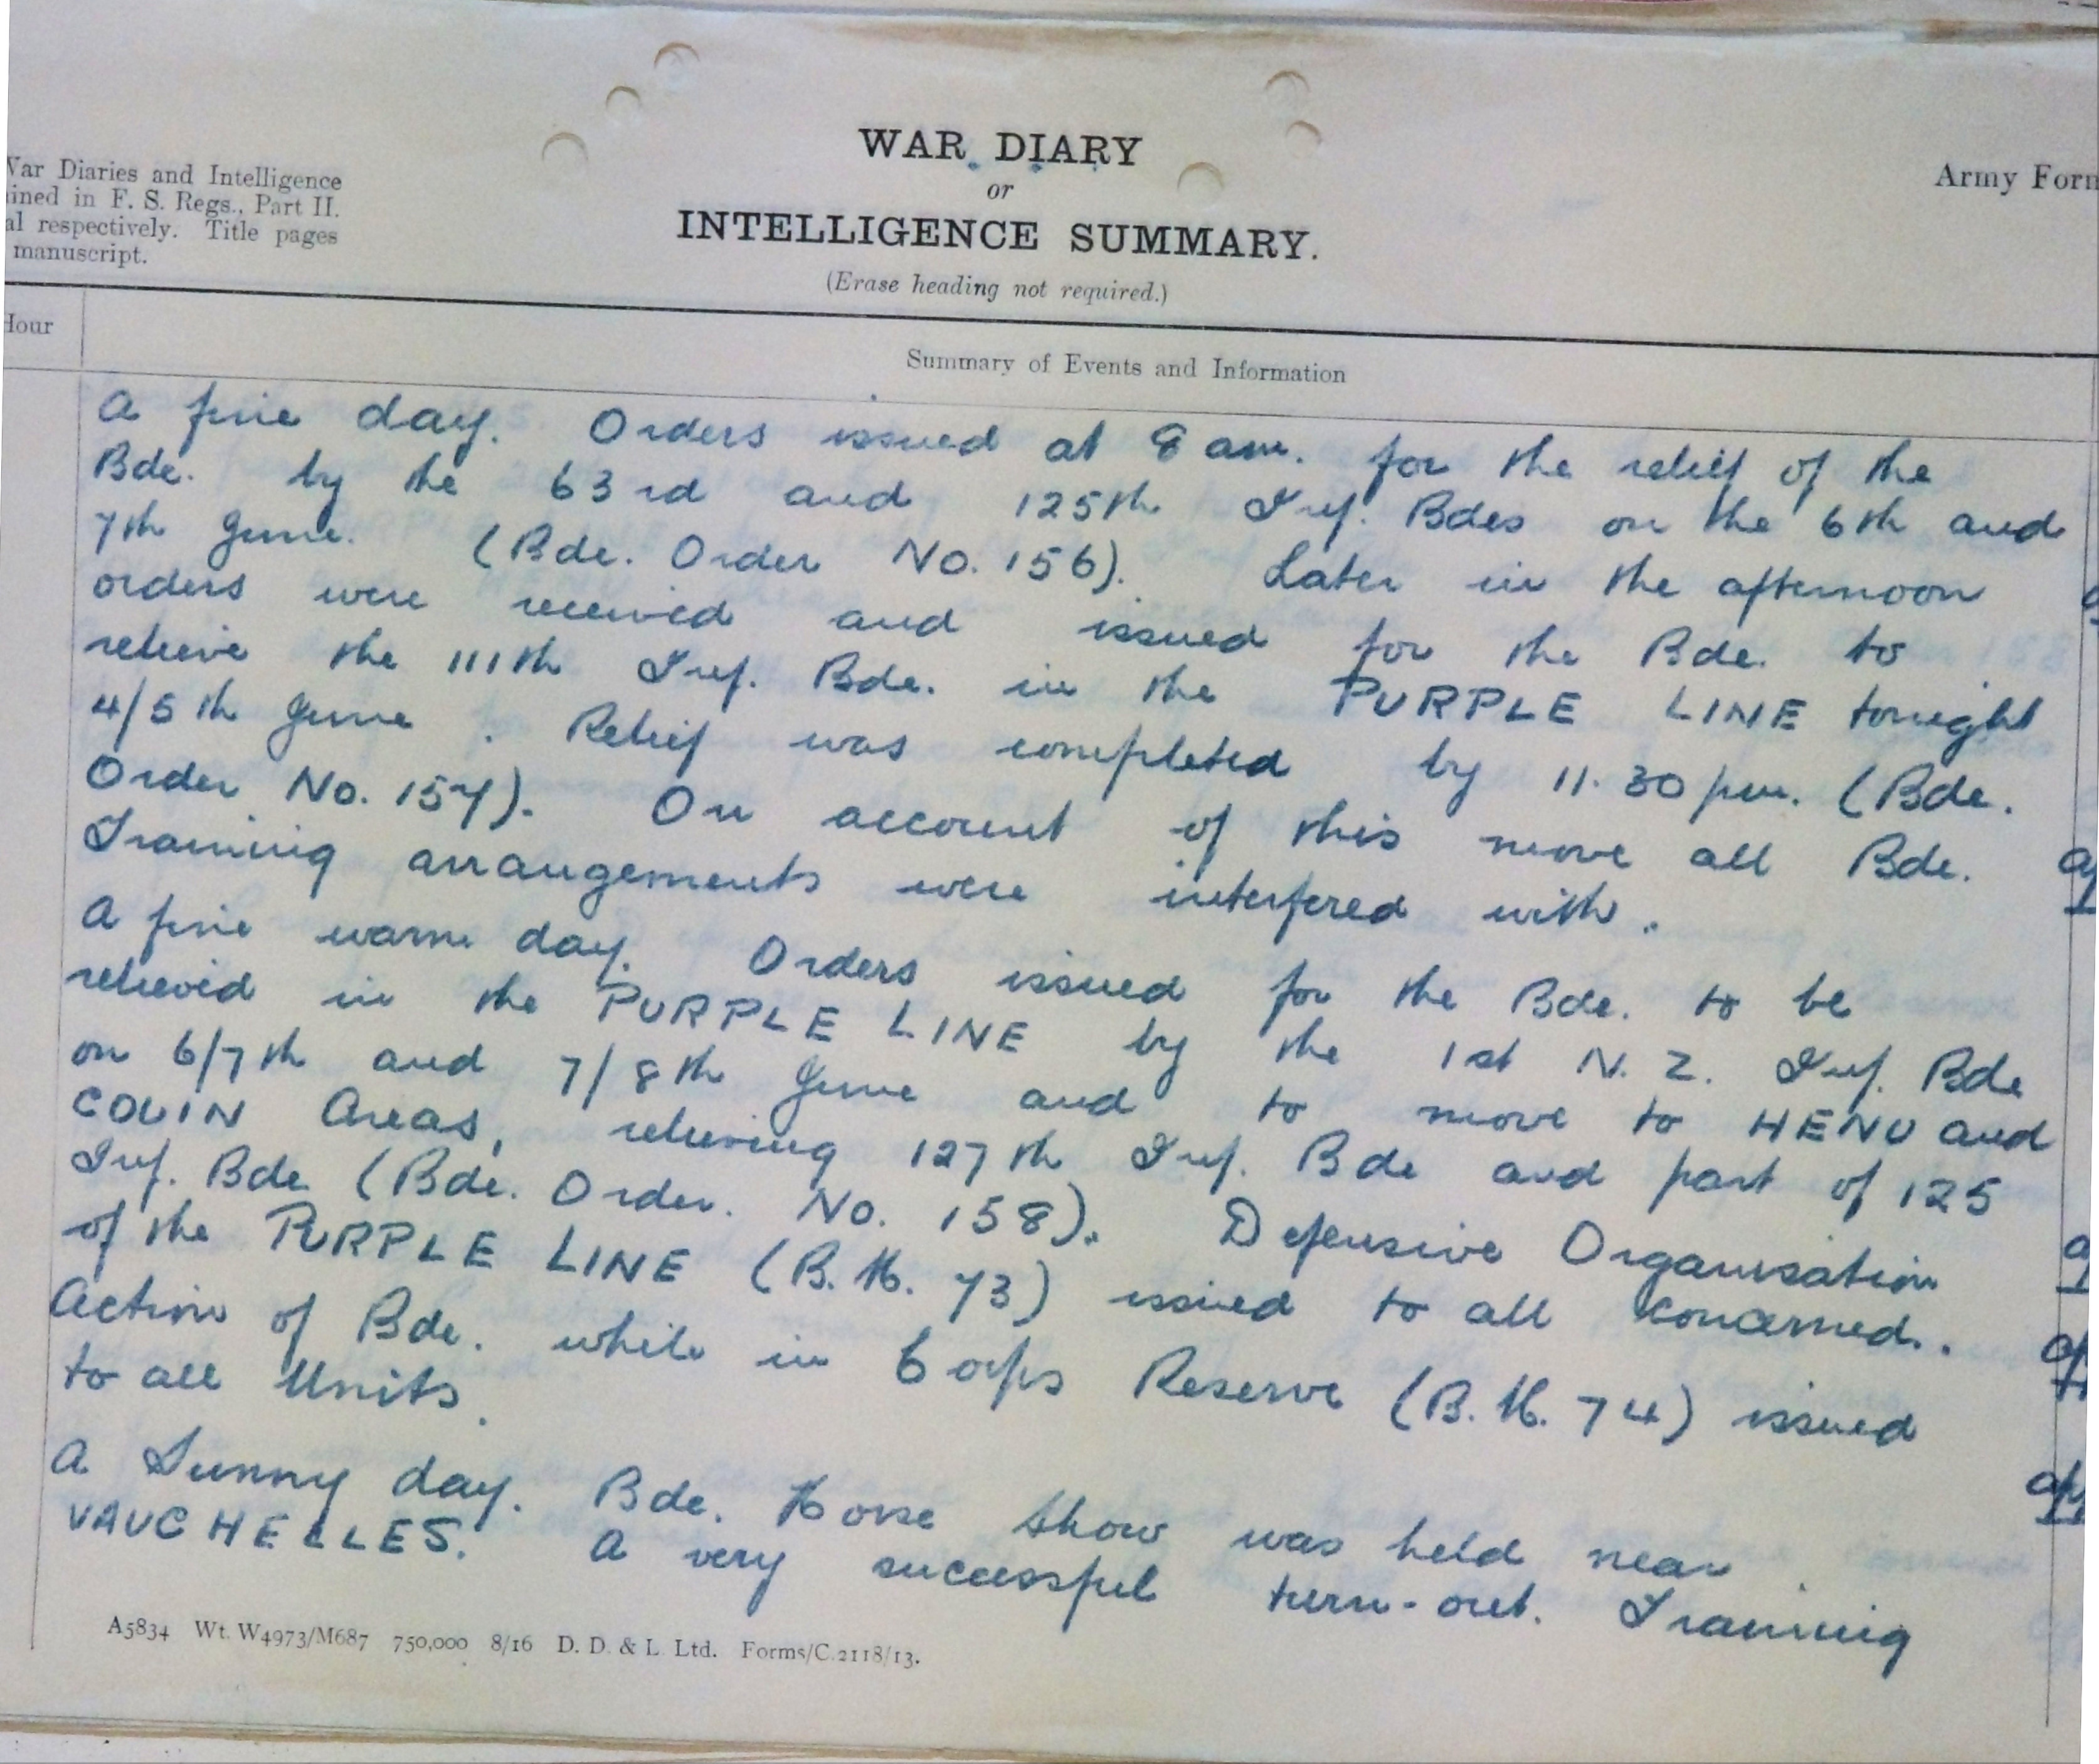 War Diaries and Intelligence
ined in F. S. Regs., Part II.
al respectively. Title pages
manuscript.
WAR DIARY
or
INTELLIGENCE SUMMARY.
(Erase heading not required.)
Army Form
Hour
Summary of Events and Information
A fine day. Orders issued at 8 am. for the relief of the
Bde. by the 63rd and 125th Inf. Bdes on the 6th and
7th June. (Bde. Order No. 156). Later in the afternoon
orders were received and issued for the Bde. to
relieve the 111th Inf. Bde. in the PURPLE LINE tonight
4/5th June. Relief was completed by 11.30 pm. (Bde.
Order No. 157). On account of this move all Bde.
Training arrangements were interfered with.
A fine warm day. Orders issued for the Bde. to be
relieved in the PURPLE LINE by the 1st N. Z. Inf. Bde
on 6/7th and 7/8th June and to move to HENU and
COUIN Areas, relieving 127th Inf. Bde and part of 125
Inf. Bde (Bde. Order. No. 158). Defensive Organisation
of the PURPLE LINE (B.M. 73) issued to all concerned.
Action of Bde. while in Corps Reserve (B.M. 74) issued
to all Units.
A Sunny day. Bde. Horse Show was held near
VAUCHELLES. A very successful turn-out. Training
A5834 Wt. W4973/M687 750,000 8/16 D. D. & L. Ltd. Forms/C.2118/13.